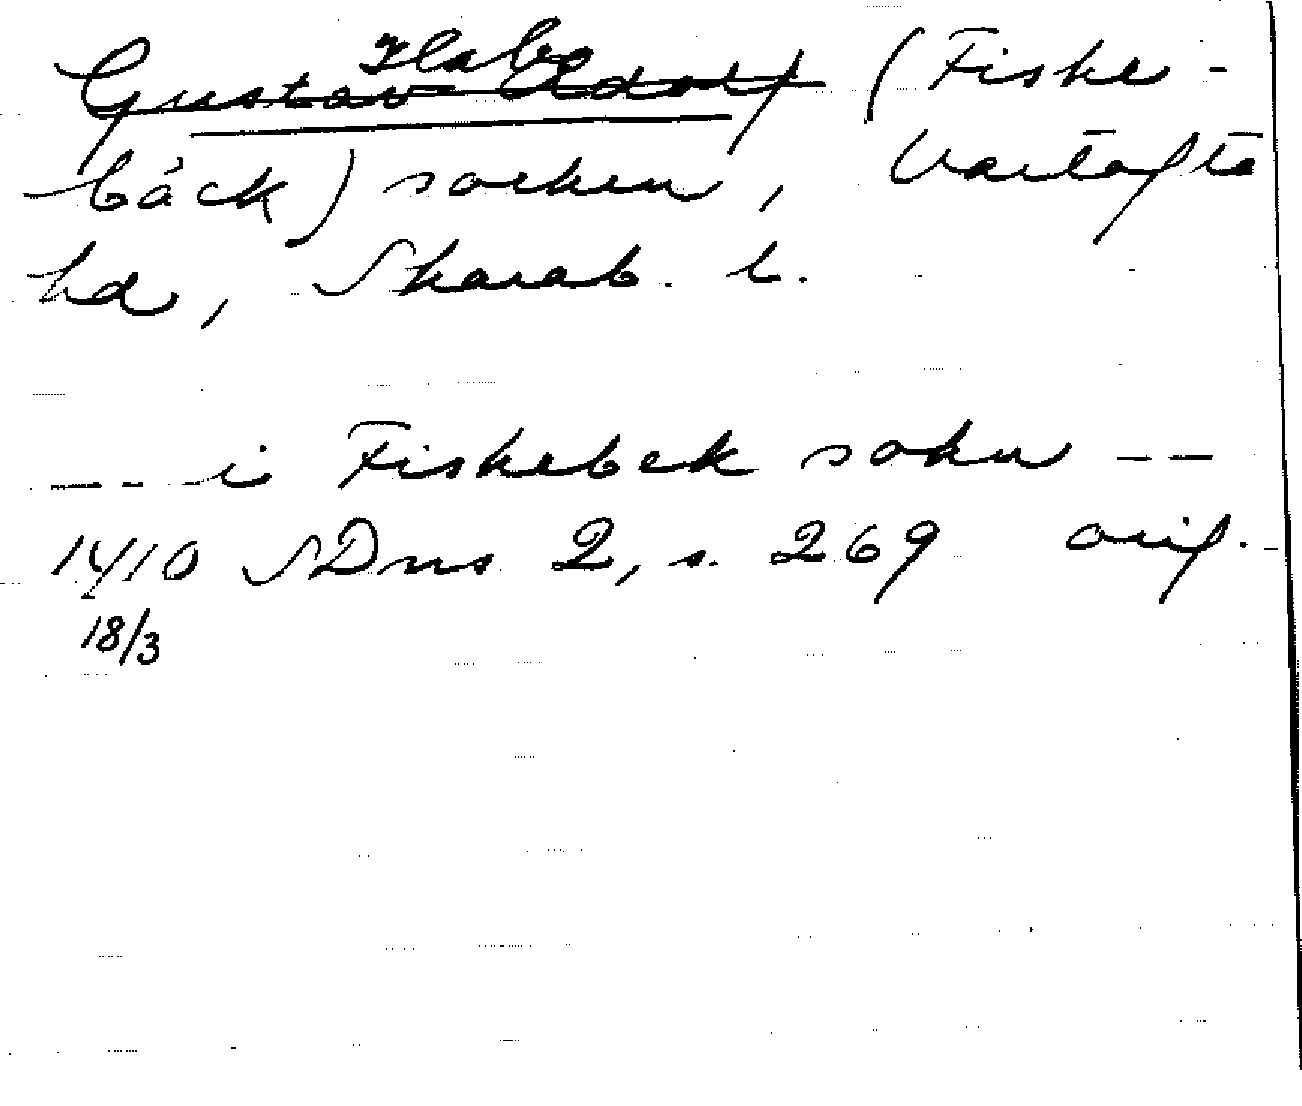 Habo
Gustav Adolf (Fiske-
bäck) socken, Vartofta
hd, Skarab. l.
--- i Fiskebek sokn --
1410 SDns 2, s. 269 orig.
18/3